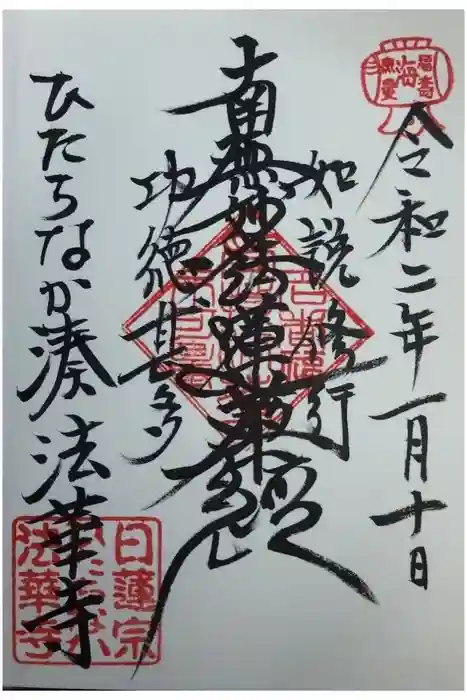 令和二年一月十日
如説修行
南無妙法蓮華経
功徳甚多
ひたちなか湊法華寺
福壽
海
無量
日蓮宗
法華寺